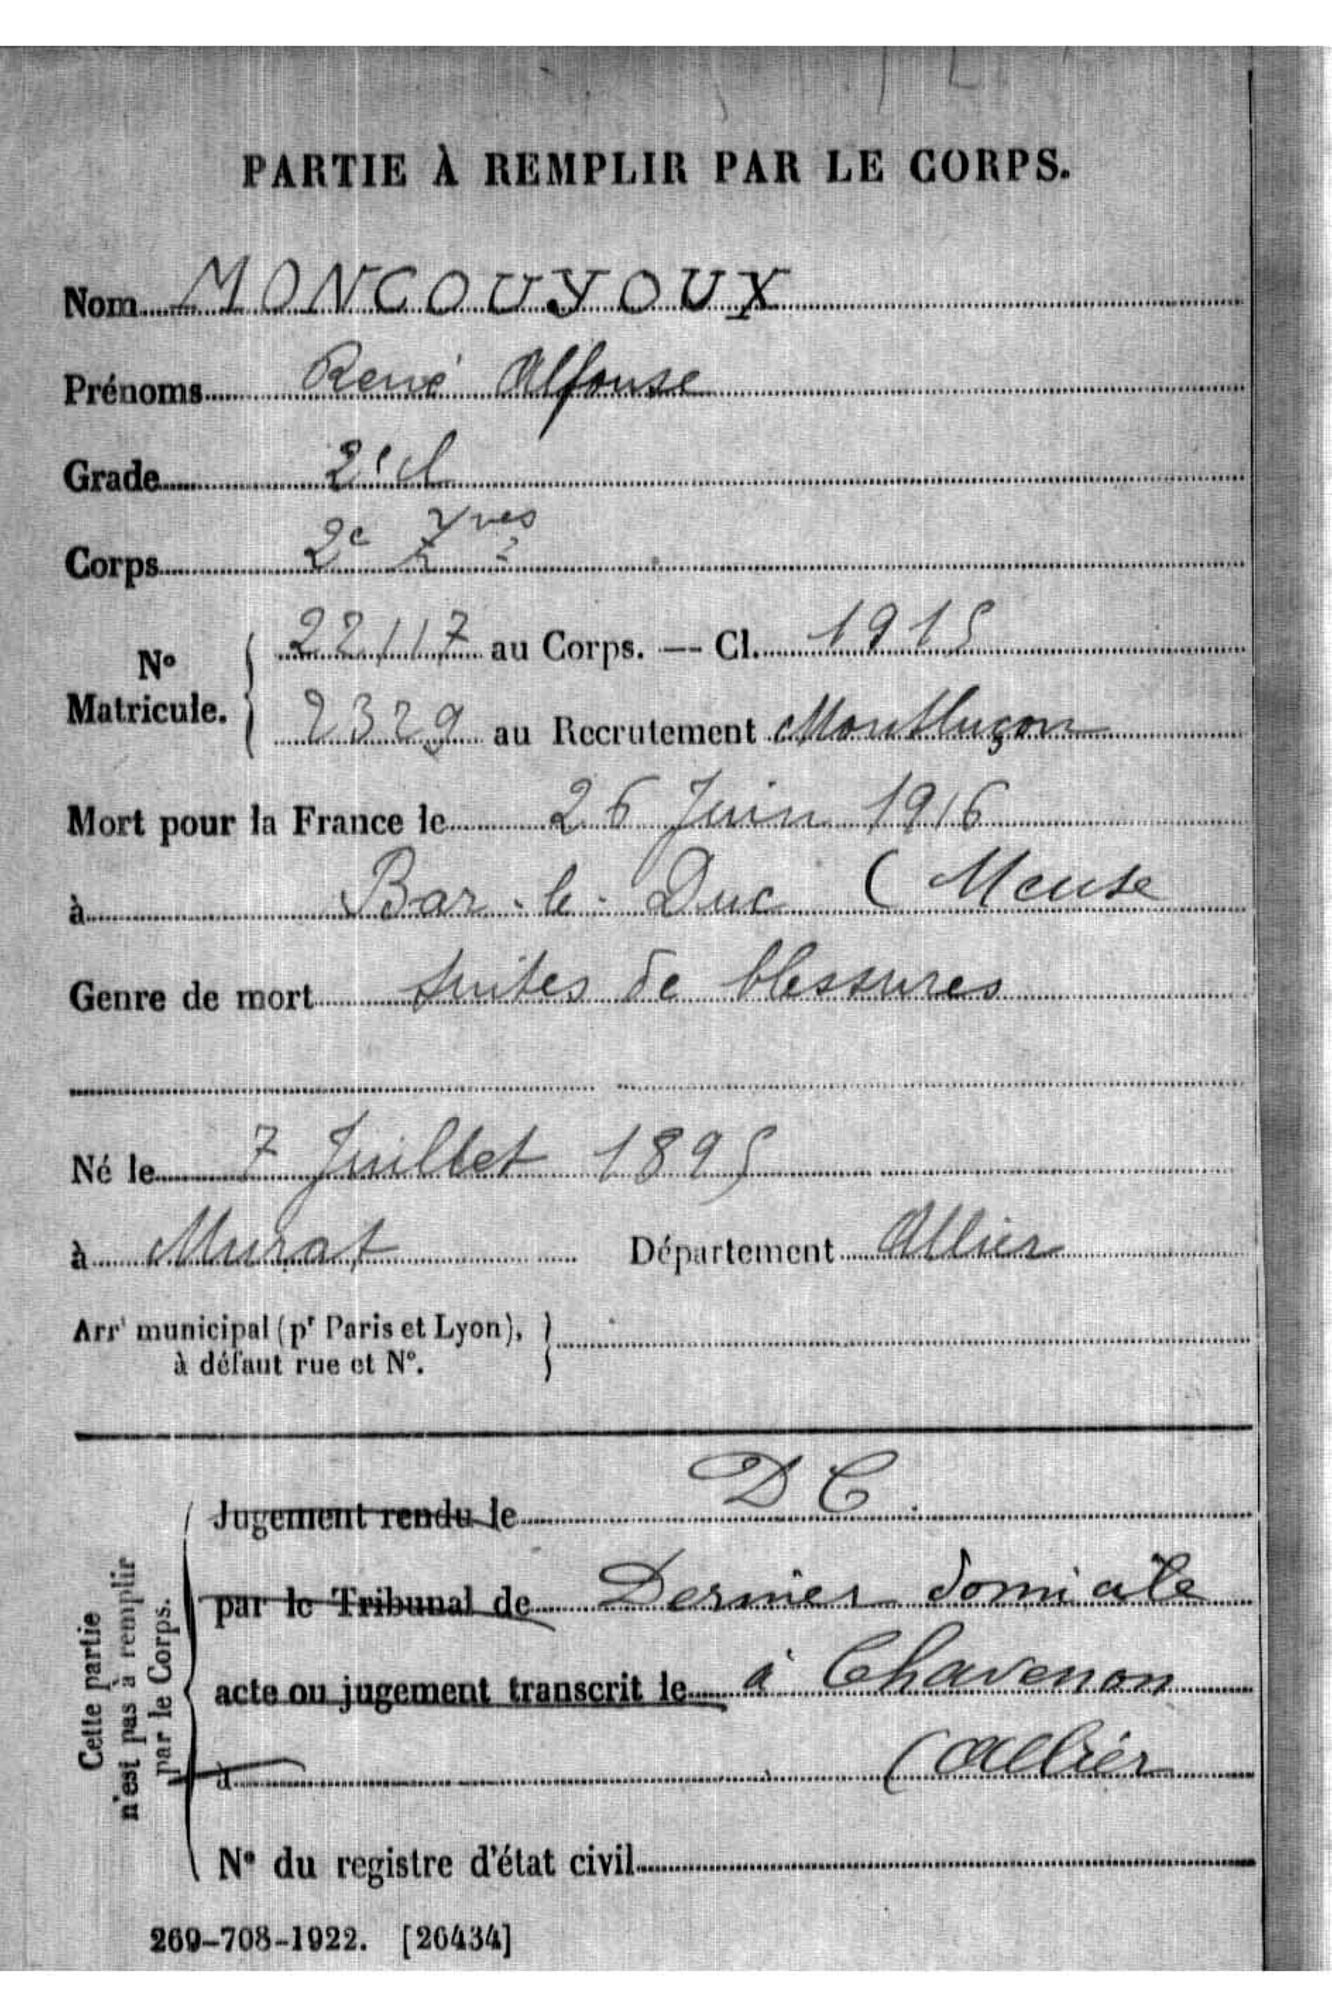 PARTIE À REMPLIR PAR LE CORPS.
Nom MONCOUYOUX
Prénoms René Alfonse
Grade 2e cl
Corps 2e Zves
N° Matricule. 22117 au Corps. — Cl. 1915
2329 au Recrutement Montluçon
Mort pour la France le 26 Juin 1916
à Bar-le-Duc (Meuse
Genre de mort suites de blessures
Né le 7 Juillet 1895
à Murat Département Allier
Arrt municipal (pr Paris et Lyon),
à défaut rue et N°.
Cette partie
n'est pas à remplir
par le Corps.
Jugement rendu le D C.
par le Tribunal de Dernier domicile
acte ou jugement transcrit le à Chavenon
à (Allier
N° du registre d'état civil
269-708-1922. [26434]